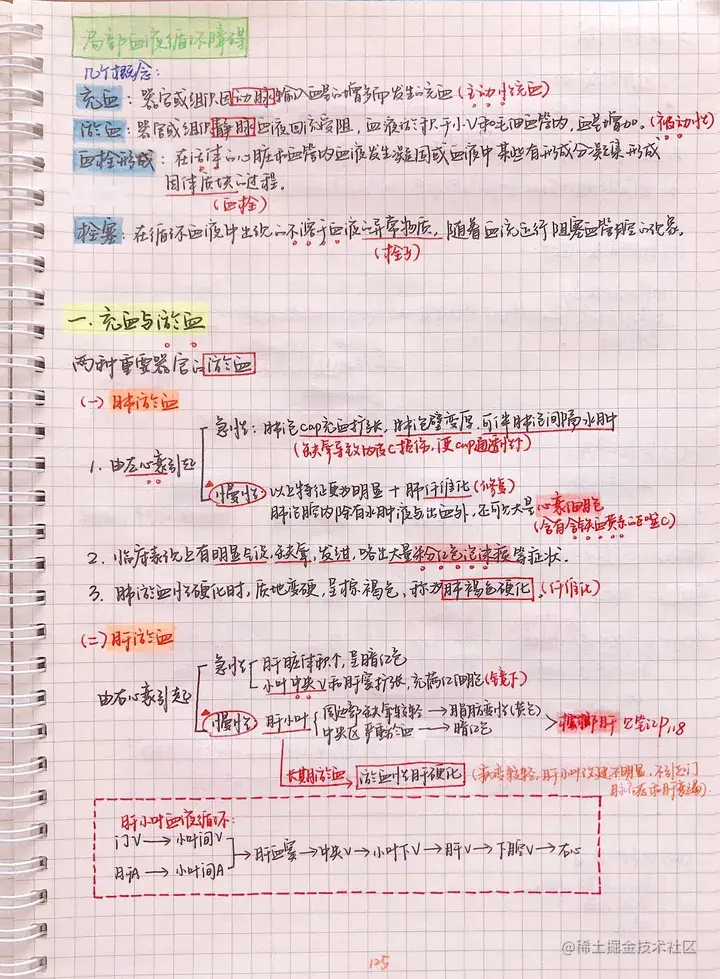 局部血液循环障碍
几个概念:
充血:器官或组织因动脉输入血量的增多而发生的充血(主动性充血)
淤血:器官或组织静脉血液回流受阻,血液淤积于小V和毛细血管内,血量增加。(被动性)
血栓形成:在活体的心脏和血管内血液发生凝固或血液中某些有形成分凝集形成
固体质块的过程。
(血栓)
栓塞:在循环血液中出现的不溶于血液的异常物质,随着血流运行阻塞血管腔的现象。
(栓子)
一.充血与淤血
两种重要器官的淤血
(一)肺淤血
急性:肺泡cap充血扩张,肺泡壁变厚,可伴肺泡间隔水肿
(缺氧导致内皮C损伤,使cap通透性↑)
1.由左心衰引起
慢性:以上特征更为明显+肺纤维化(修复)
肺泡腔内除有水肿液与出血外,还可见大量心衰细胞
(含有含铁血黄素的巨噬C)
2.临床表现上有明显气促,缺氧,发绀,咯出大量粉红色泡沫痰等症状.
3.肺淤血性硬化时,质地变硬,呈棕褐色,称为肺褐色硬化.(纤维化)
(二)肝淤血
急性 肝脏体积↑,呈暗红色
小叶中央V和肝窦扩张,充满红细胞(镜下)
由右心衰引起
慢性 肝小叶 周边部缺氧较轻→脂肪变性(黄色)
中央区严重淤血→暗红色 > 槟榔肝 见笔记P118
长期淤血→淤血性肝硬化(病变较轻,肝小叶改建不明显,不引起门
脉高压和肝衰竭)
肝小叶血液循环:
门V→小叶间V
肝A→小叶间A →肝血窦→中央V→小叶下V→肝V→下腔V→右心
125
@稀土掘金技术社区